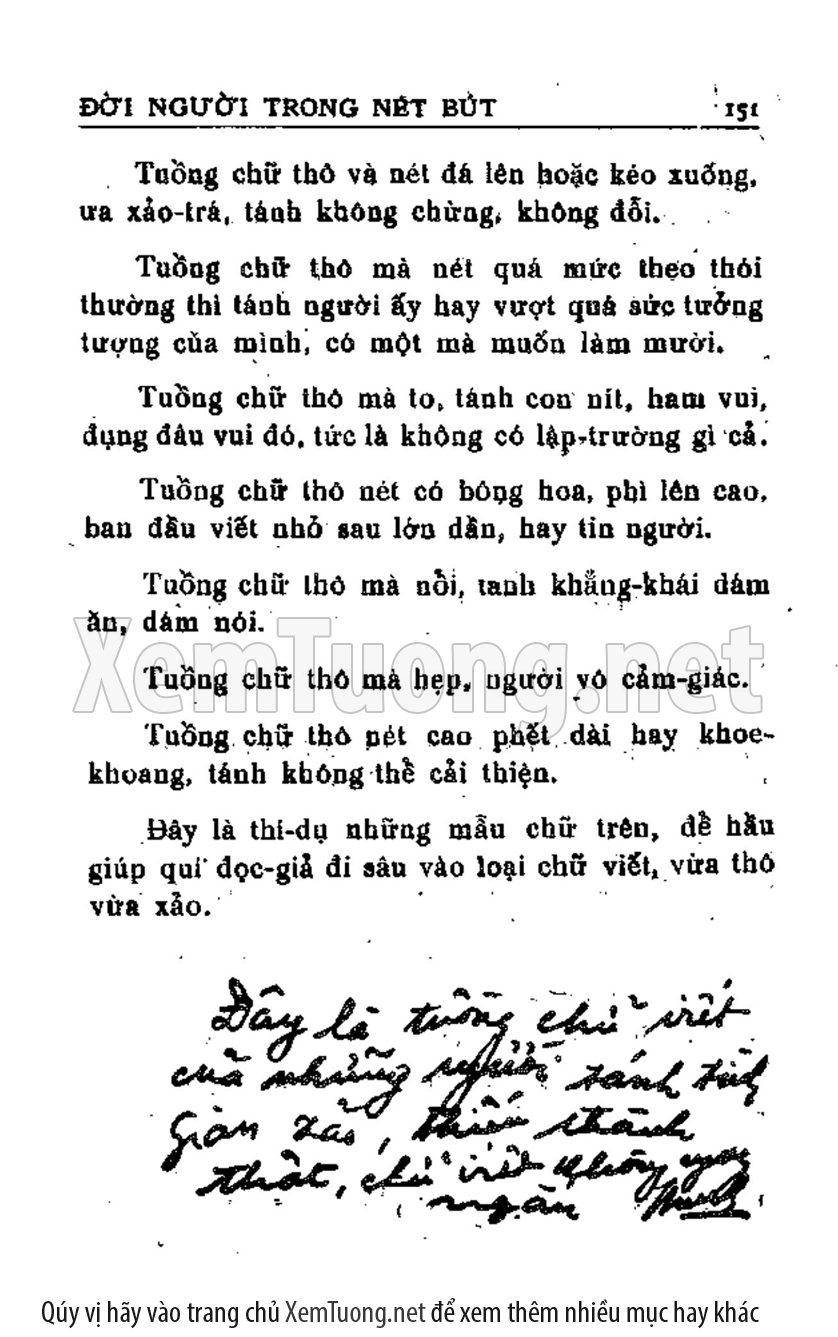 ĐỜI NGƯỜI TRONG NÉT BÚT 151
Tuồng chữ thô và nét đá lên hoặc kéo xuống,
ưa xảo-trá, tánh không chừng, không đỗi.
Tuồng chữ thô mà nét quá mức theo thói
thường thì tánh người ấy hay vượt quá sức tưởng
tượng của mình, có một mà muốn làm mười.
Tuồng chữ thô mà to, tánh con nít, ham vui,
đụng đâu vui đó, tức là không có lập-trường gì cả.
Tuồng chữ thô nét có bông hoa, phì lên cao,
ban đầu viết nhỏ sau lớn dần, hay tin người.
Tuồng chữ thô mà nổi, tánh khẳng-khái dám
ăn, dám nói.
XemTuong.net
Tuồng chữ thô mà hẹp, người vô cảm-giác.
Tuồng chữ thô nét cao phết dài hay khoe-
khoang, tánh không thể cải thiện.
Đây là thí-dụ những mẫu chữ trên, để hầu
giúp quí đọc-giả đi sâu vào loại chữ viết, vừa thô
vừa xảo.
Đây là tuồng chữ viết
của những người tánh tình
gian xảo, thiếu thành
thật, chữ viết không ngay
ngắn
Qúy vị hãy vào trang chủ XemTuong.net để xem thêm nhiều mục hay khác